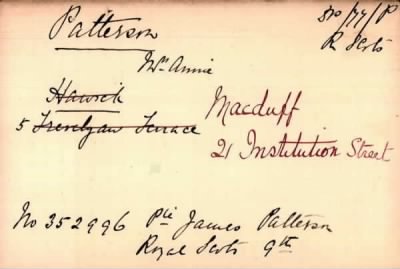 Patterson
R Scots
Mrs Annie
Hawick
5 Trevelyan Terrace
Macduff
21 Institution Street
No 352996 Pte James Patterson
Royal Scots 9th